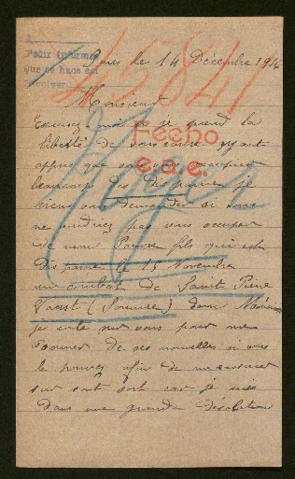 45841
Felix informar
que se hace en
Fecho
e.a.e.
le 14 Décembre 1916
Monsieur
Excusez moi si je prend la
liberté de vous écrire ayant
appris que vous vous occupiez
beaucoup des disparus je
viens vous demander si vous
ne voudriez pas vous occuper
de mon Pauvre fils qui est
disparu le 15 Novembre
au combat de Sainte Pierre
Vaast (Somme) dans
je conte sur vous pour me
donner de ses nouvelles si vous
le pouvez afin de me rassurer
sur son sort car je suis
dans une grande désolation